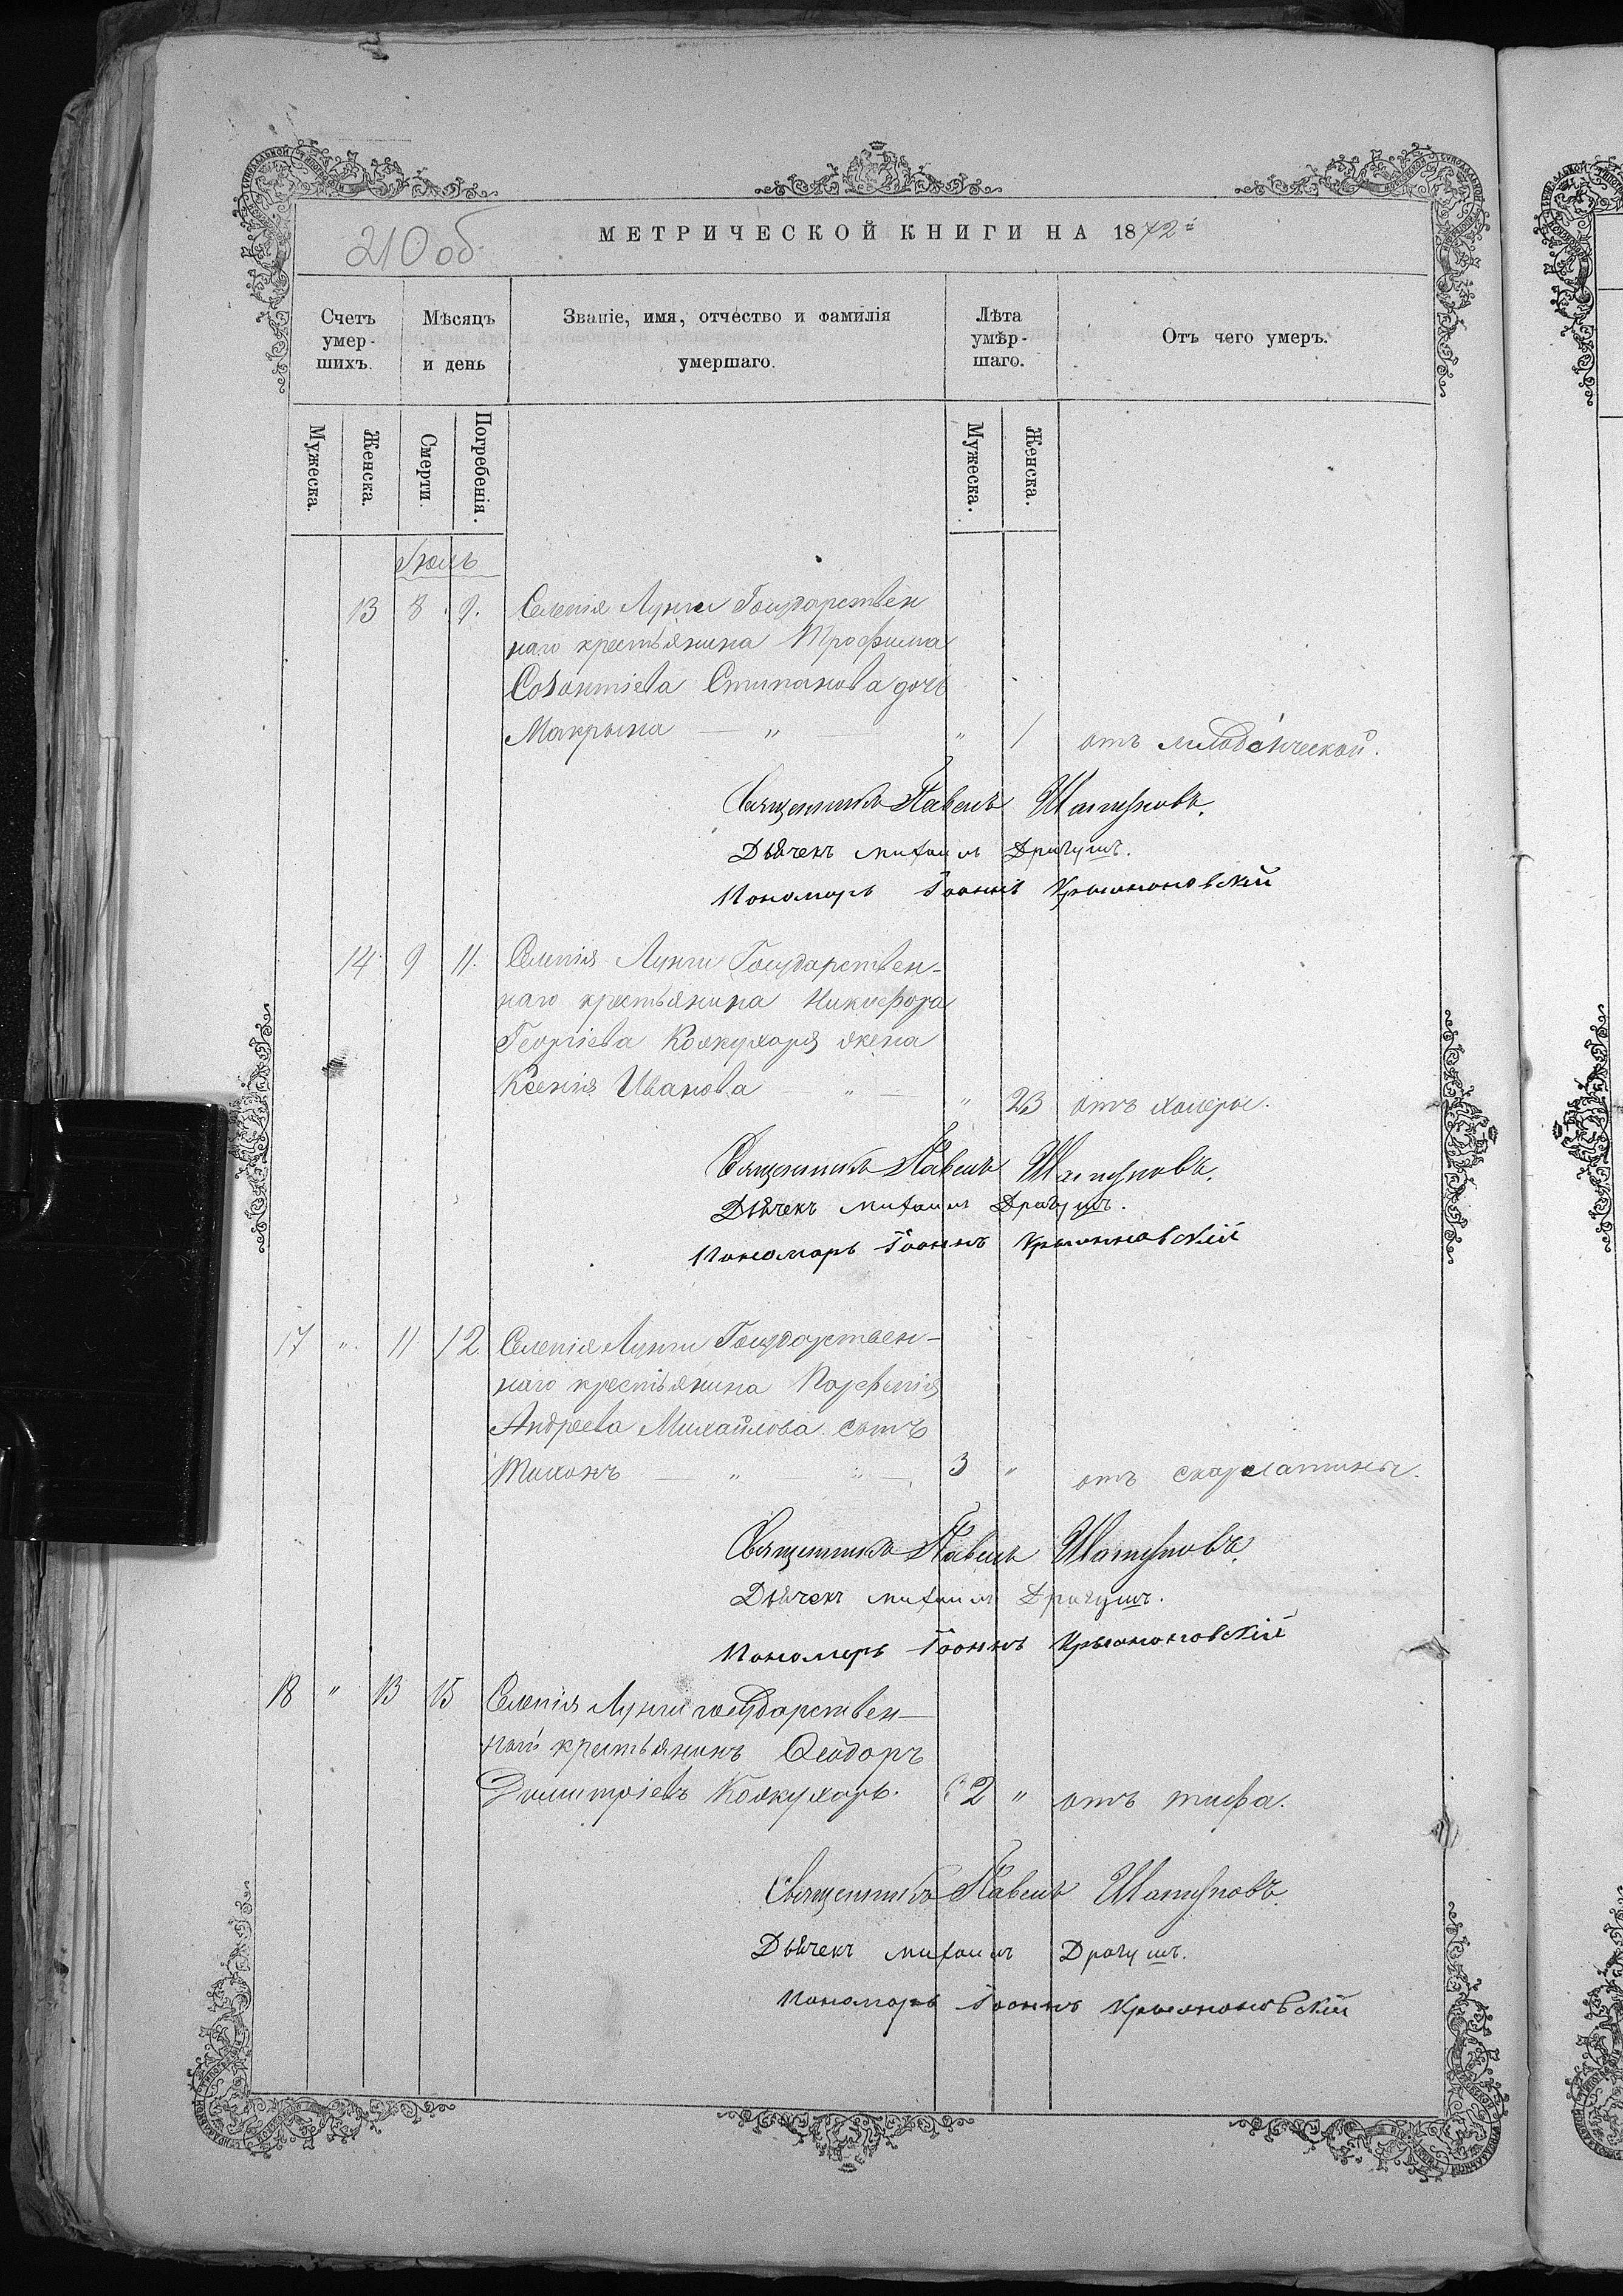 210 об
МЕТРИЧЕСКОЙ КНИГИ НА 1872
Счетъ умер-шихъ.
Мѣсяцъ и день
Званіе, имя, отчество и фамилія умершаго.
Лѣта умѣр-шаго.
Отъ чего умеръ.
Мужеска.
Женска.
Смерти.
Погребенія.
Мужеска.
Женска.
Іюль
13 8 9. Селенія Лунги Государствен
наго крестьянина Трофима
Стипанова дочь
Макрына — " — " 1 отъ
Священникъ Павелъ
Дьячекъ Михаилъ Драгушъ.
Пономарь Іоаннъ Крыжановскій
14 9 11. Селенія Лунги Государствен-
наго крестьянина Никифора
Георгіева Кожухаря жена
Ксенія Иванова — " — " 23 отъ холеры.
Священникъ Павелъ
Дьячекъ Михаилъ Драгушъ.
Пономарь Іоаннъ Крыжановскій
17 " 11 12 Селенія Лунги Государствен-
наго крестьянина Порфирія
Андреева Михайлова сынъ
Тихонъ — " " — 3 " отъ скарлатины.
Священникъ Павелъ
Дьячекъ Михаилъ Драгушъ.
Пономарь Іоаннъ Крыжановскій
18 " 13 15 Селенія Лунги государствен-
ный крестьянинъ Ѳеодоръ
Димитріевъ Кожухарь. 62 " отъ тифа.
Священникъ Павелъ
Дьячекъ Михаилъ Драгушъ.
Пономарь Іоаннъ Крыжановскій